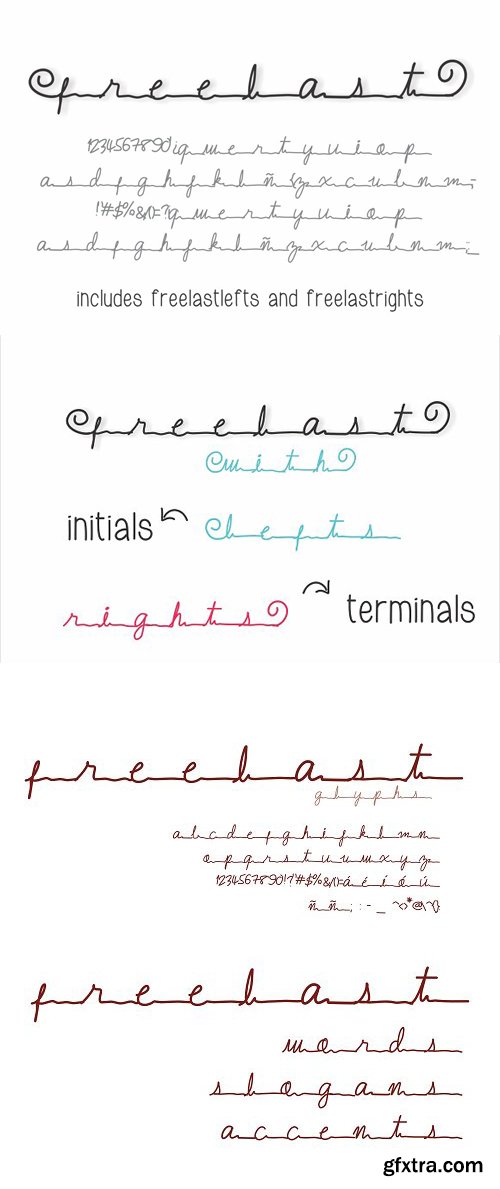 freelast
1234567890'¡qwertyuiop
asdfghjklñ{zxcvbnm,;
!"#$%&/()=?qwertyuiop
asdfghjklñzxcvbnm;_
includes freelastlefts and freelastrights
freelast
with
initials
lefts
rights
terminals
freelast
glyphs
abcdefghijklmn
opqrstuvwxyz
1234567890!?'#$%&/()=áéíóú
ññ;:-_
freelast
words
slogans
accents
gfxtra.com